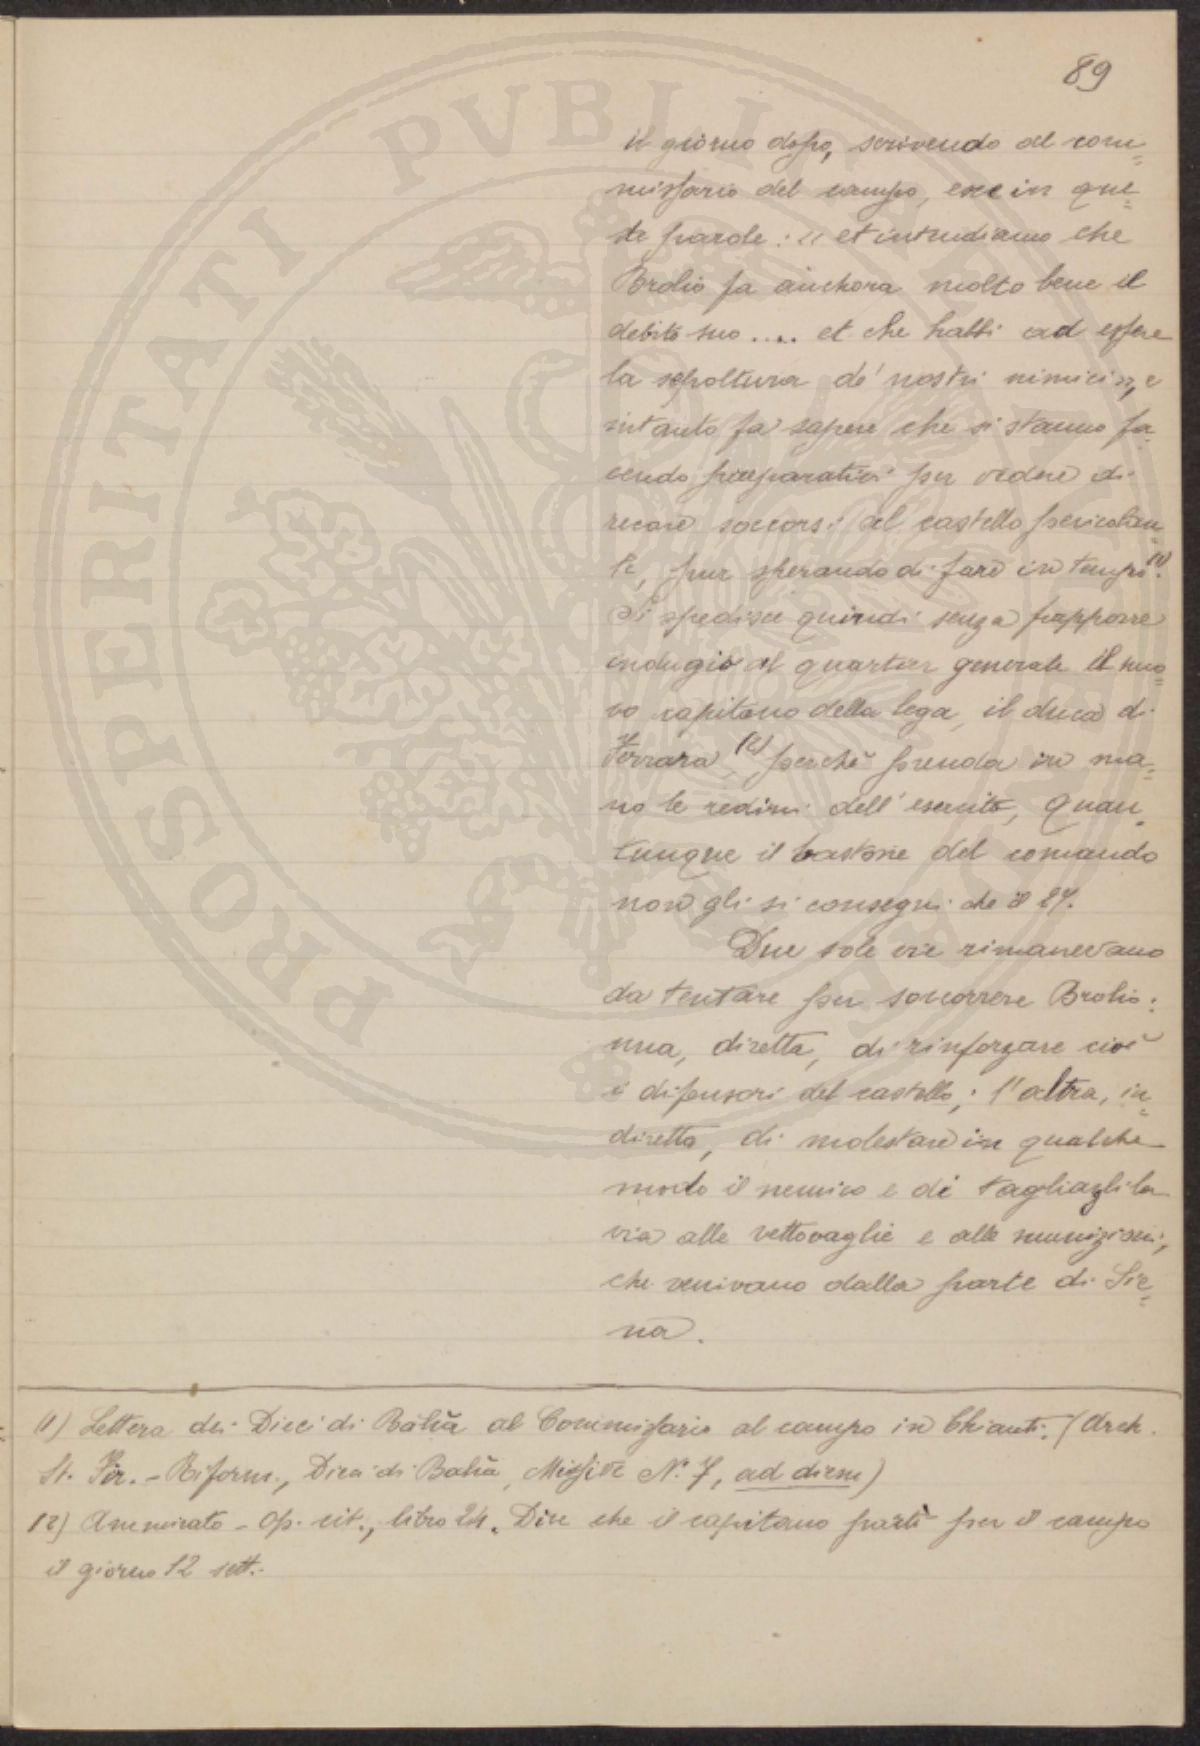 89
il giorno dopo, scrivendo al com=
missario del campo, esce in que=
ste parole: « et intendiamo che
Brolio fa anchora molto bene il
debito suo .... et che habbi ad essere
la sepoltura de' nostri nimici », e
intanto fa sapere che si stanno fa=
cendo preparativi per vedere di
recare soccorsi al castello pericolan=
te, pur sperando di fare in tempo (1).
Si spedisce quindi senza frapporre
indugio al quartier generale il nuo=
vo capitano della lega, il duca di
Ferrara (2), perchè prenda in ma=
no le redini dell'esercito, quan=
tunque il bastone del comando
non gli si consegni che il 27.
Due sole vie rimanevano
da tentare per soccorrere Brolio:
una, diretta, di rinforzare cioè
i difensori del castello; l'altra, in=
diretta, di molestare in qualche
modo il nemico e di tagliargli la
via alle vettovaglie e alle munizioni,
che venivano dalla parte di Sie=
na.
(1) Lettera dei Dieci di Balìa al Commissario al campo in Chianti. (Arch.
St. Fir. - Riform., Dieci di Balìa, Missive N. 7, ad diem)
(2) Ammirato - Op. cit., libro 24. Dice che il capitano partì per il campo
il giorno 12 sett.
PROSPERITATI PVBLI